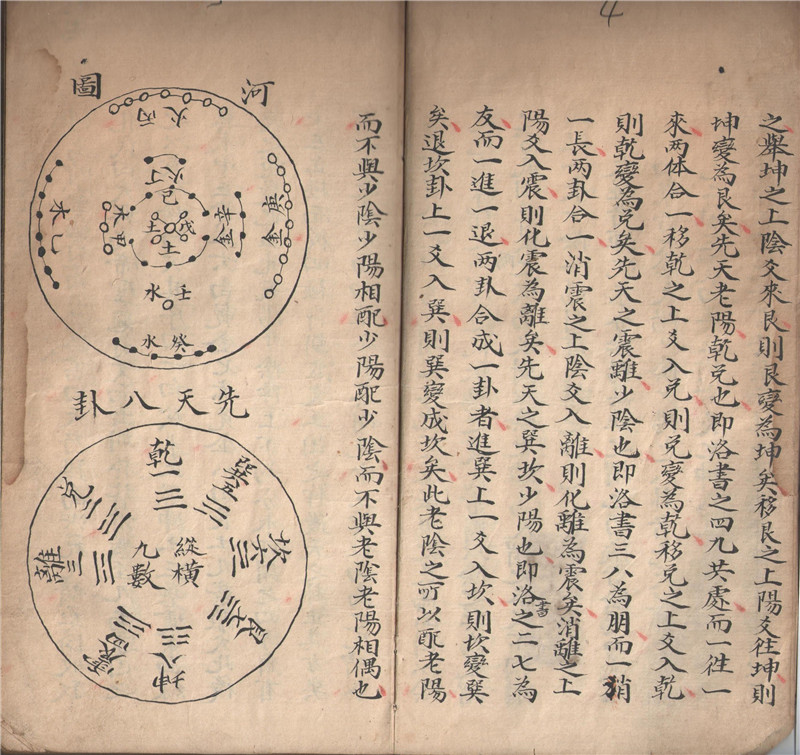 4
之舉坤之上陰爻來艮則艮變為坤矣移艮之上陽爻往坤則
坤變為艮矣先天老陽乾兌也即洛書之四九共處而一往一
來两体合一移乾之上爻入兌則兌變為乾移兌之上爻入乾
則乾變為兌矣先天之震離少陰也即洛書三八為朋而一消
一長两卦合一消震之上陰爻入離則化離為震矣消離之上
陽爻入震則化震為離矣先天之巽坎少陽也即洛書之二七為
友而一進一退两卦合成一卦者進巽上一爻入坎則坎變巽
矣退坎卦上一爻入巽則巽變成坎矣此老陰之所以配老陽
而不與少陰少陽相配少陽配少陰而不與老陰老陽相偶也
河圖
火丙
火丁
己
戊
土
土
庚金
辛金
木甲
木乙
壬水
癸水
先天八卦
乾一☰
兌二☱
離三☲
震四☳
巽五☴
坎六☵
艮七☶
坤八☷
縱橫
九數